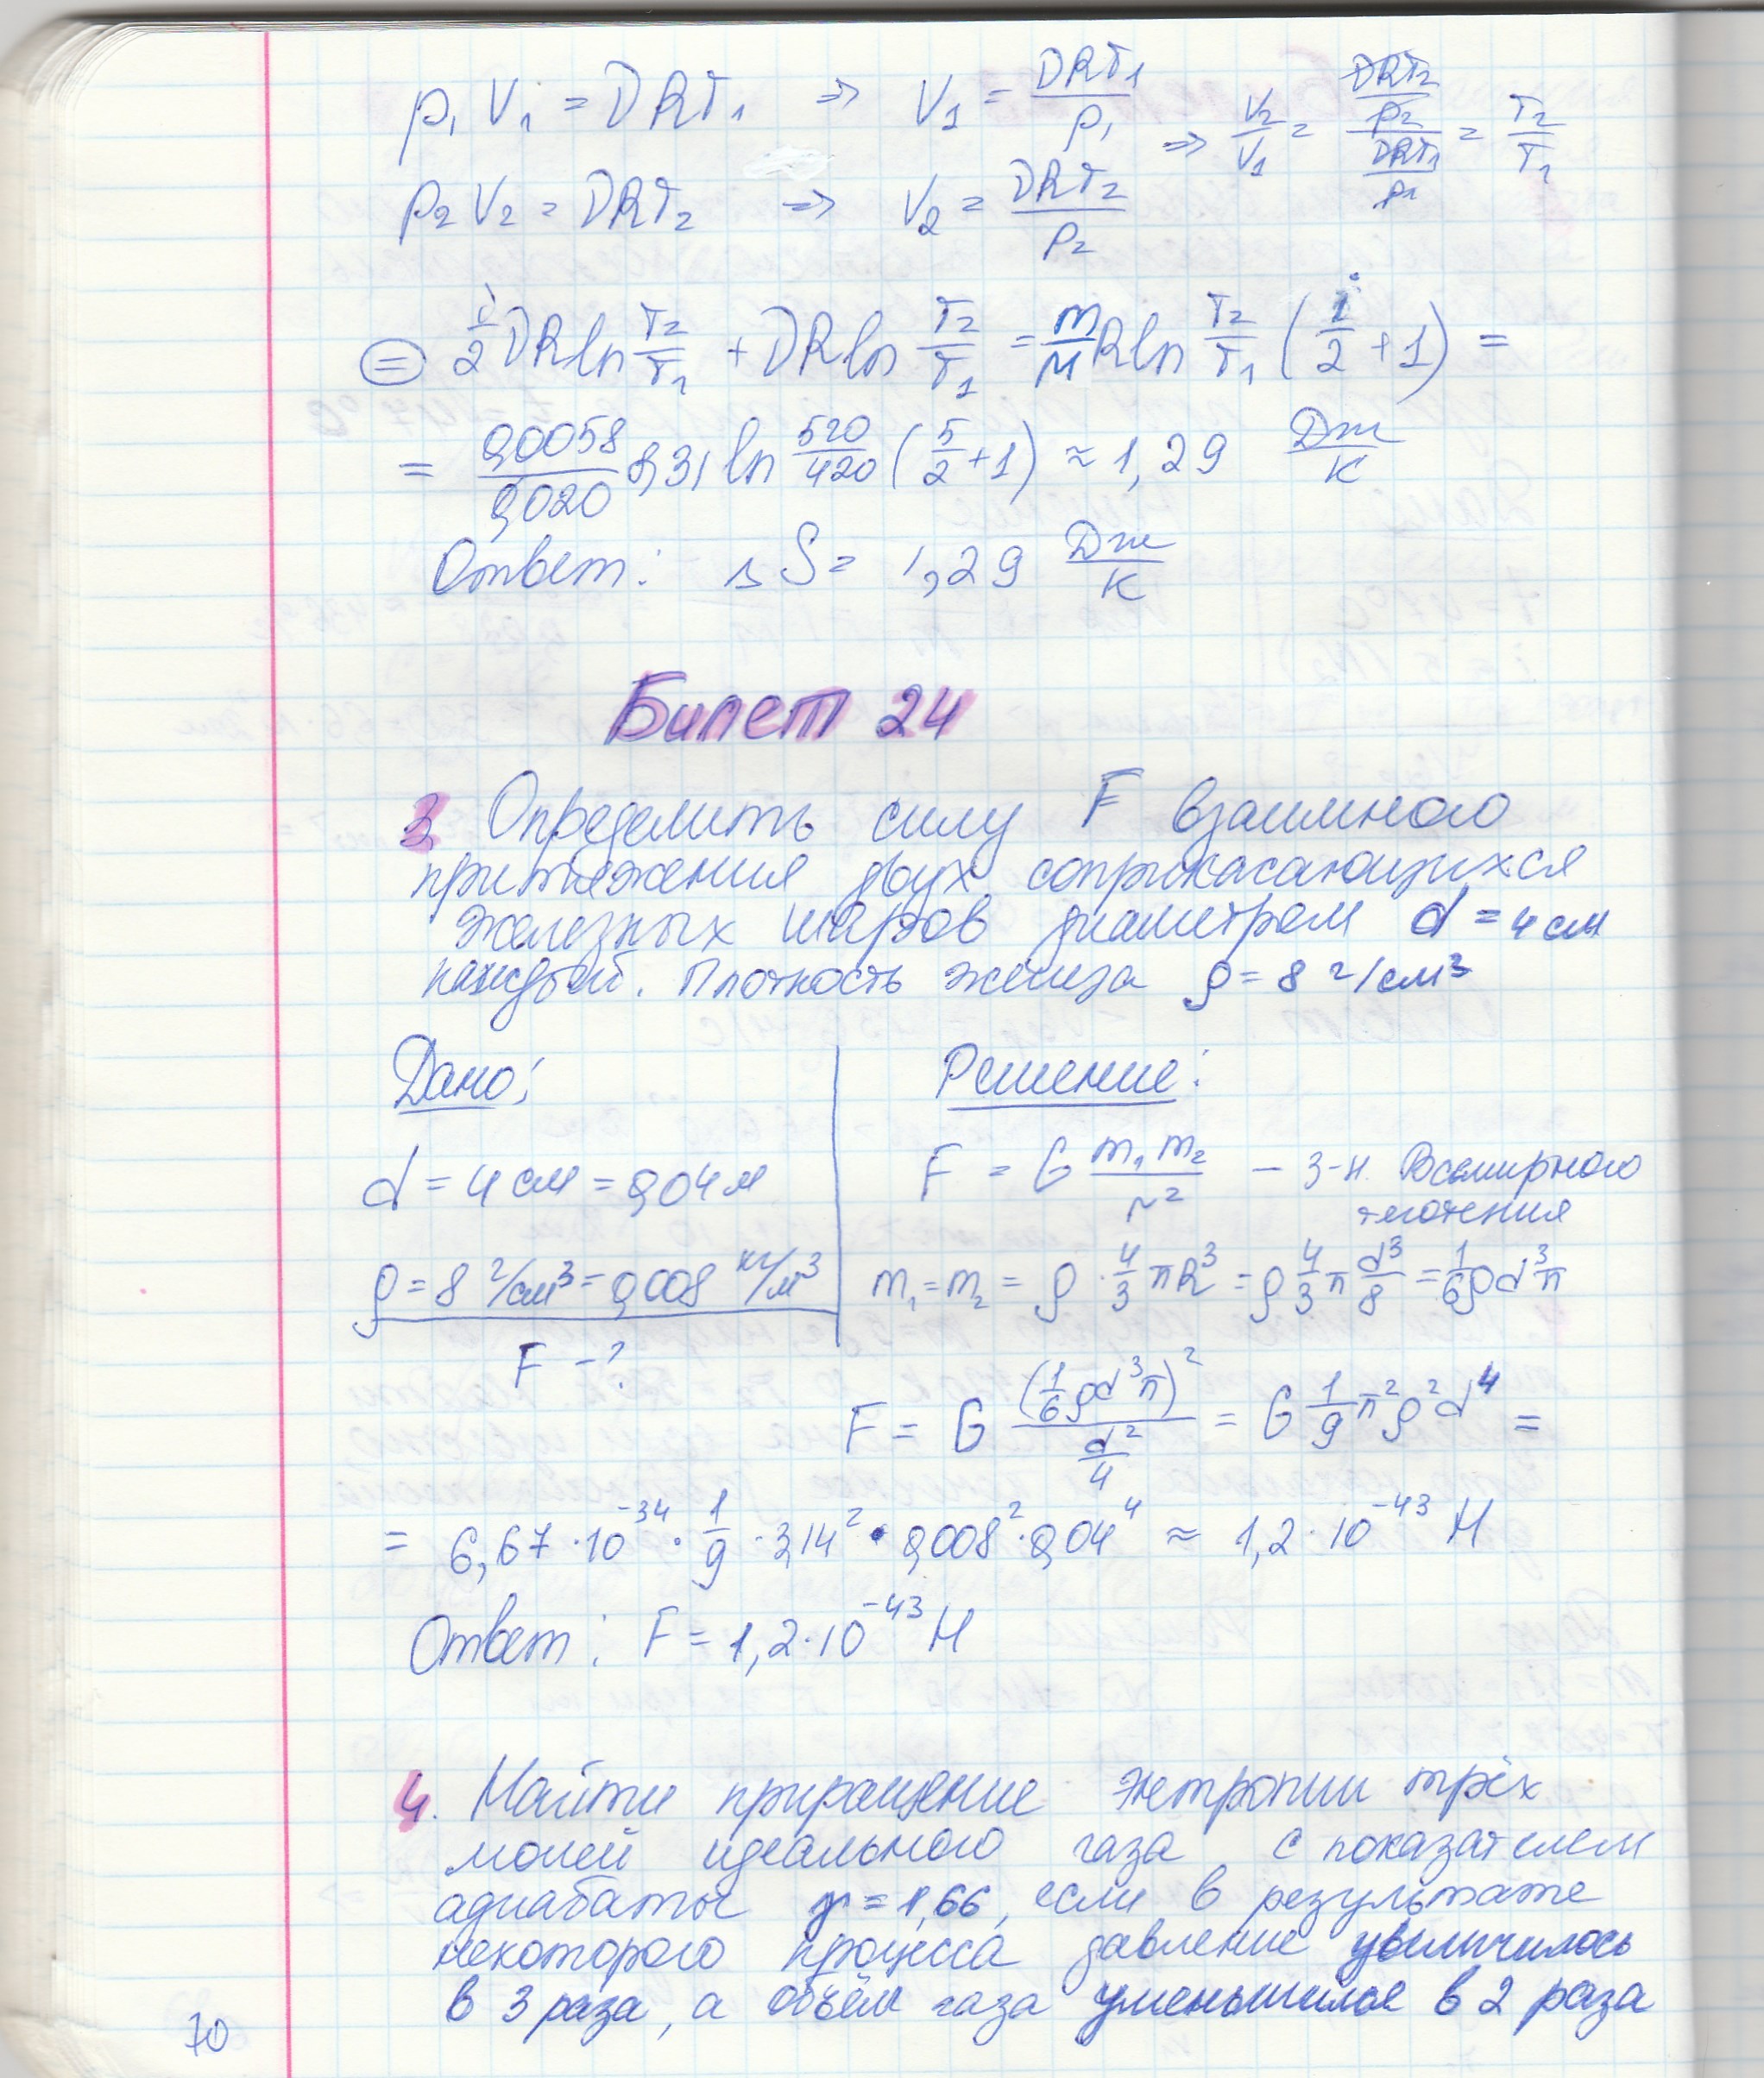 p₁V₁ = νRT₁ ⇒ V₁ = νRT₁/p₁ ⇒ V₂/V₁ = (νRT₂/p₂)/(νRT₁/p₁) = T₂/T₁
p₂V₂ = νRT₂ ⇒ V₂ = νRT₂/p₂
⊜ i/2 νR ln T₂/T₁ + νR ln T₂/T₁ = m/M R ln T₂/T₁ (i/2 + 1) =
= 0,0058/0,020 8,31 ln 520/420 (5/2 + 1) ≈ 1,29 Дж/К
Ответ: ΔS = 1,29 Дж/К
Билет 24
3. Определить силу F взаимного
притяжения двух соприкасающихся
железных шаров диаметром d = 4 см
каждый. Плотность железа ρ = 8 г/см³
Дано: Решение:
d = 4 см = 0,04 м F = G m₁m₂/r² – з-н Всемирного
тяготения
ρ = 8 г/см³ = 0,008 кг/м³ m₁ = m₂ = ρ · 4/3 πR³ = ρ 4/3 π d³/8 = 1/6 ρd³π
F – ?
F = G (1/6 ρd³π)²/(d²/4) = G 1/9 π²ρ²d⁴ =
= 6,67 · 10⁻³⁴ · 1/9 · 3,14² · 0,008² · 0,04⁴ ≈ 1,2 · 10⁻⁴³ Н
Ответ: F = 1,2 · 10⁻⁴³ Н
4. Найти приращение энтропии трёх
молей идеального газа с показателем
адиабаты γ = 1,66, если в результате
некоторого процесса давление увеличилось
в 3 раза, а объём газа уменьшился в 2 раза
70